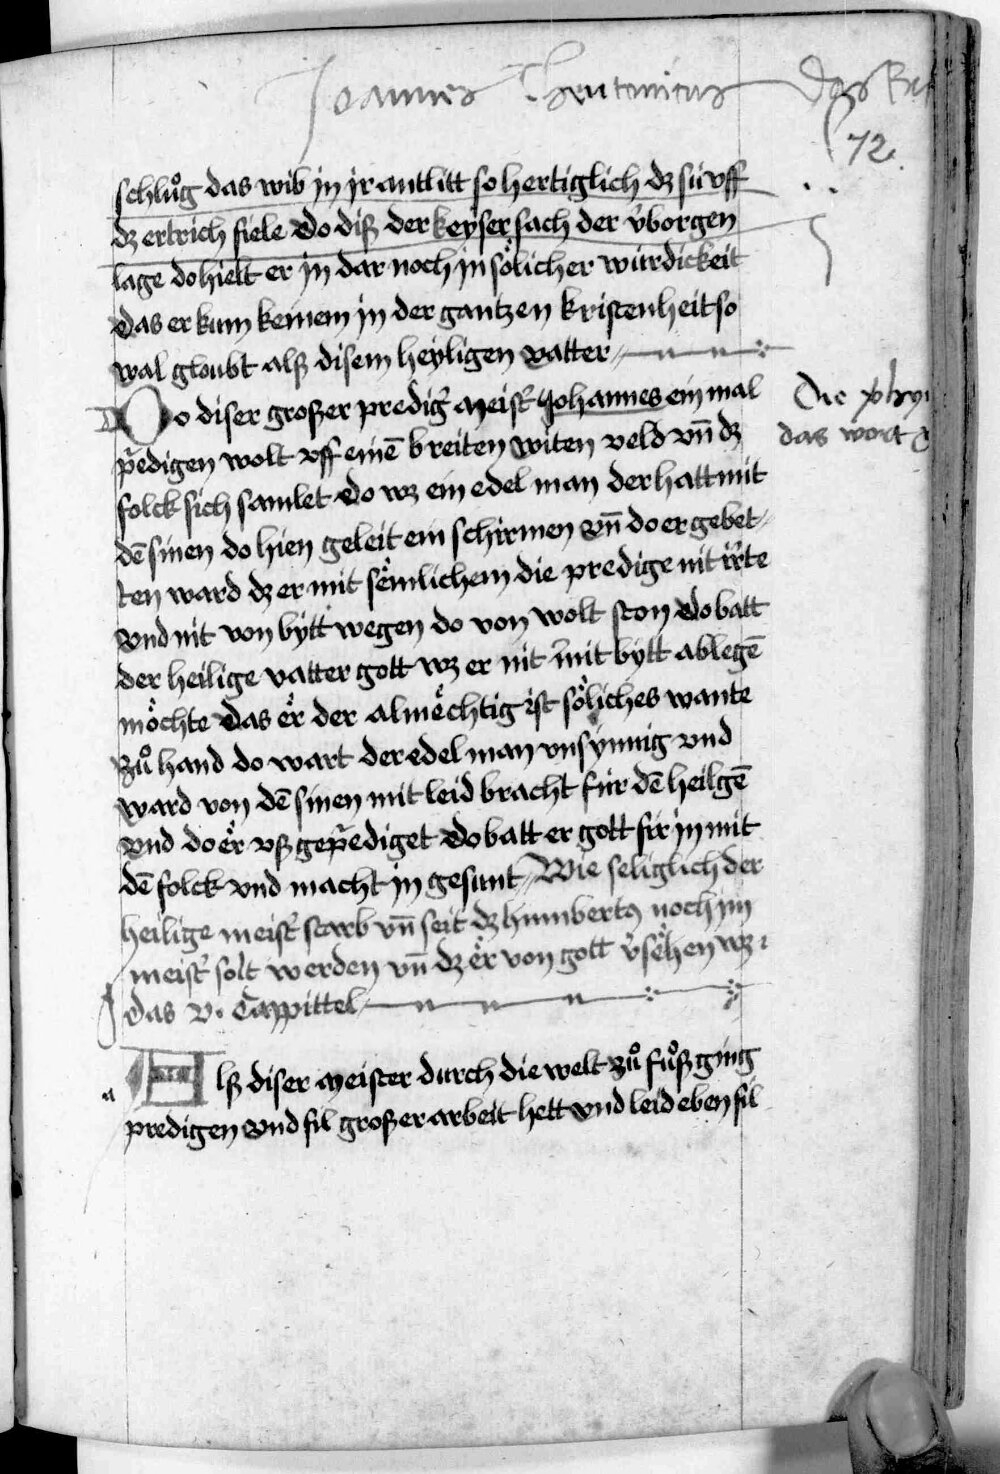 Joannes Theutonicus
Das
72
schlůg das wib in ir antlitt so hertiglich dz sú vff
dz ertrich fiele Do diß der keyser sach der v̉borgen
lage do hielt er in dar noch in sölicher würdickeit
das er kum keinem in der gantzen kristenheit so
wal gloubt alß disem heyligen vatter
Do diser großer predig̉ meist̉ Johannes ein mal
p̉edigen wolt vff einē breiten witen veld vn̄ dz
folck sich samlet do wz ein edel man der hatt mit
dē sinen do hien geleit ein schirmen vn̄ do er gebet-
ten ward dz er mit semlichem die predige nit irrte
vnd nit von bytt wegen do von wolt ston do batt
der heilige vatter gott wz er nit mit bytt ablegē
möchte das er der almechtig ist söliches wante
zů hand do wart der edel man vnsynnig vnd
ward von dē sinen mit leid bracht für dē heilgē
vnd do er vß gep̉ediget do batt er gott für in mit
dē folck vnd macht in gesunt Wie seliglich der
heilige meist̉ starb vn̄ seit dz humbertꝯ noch im
meist̉ solt werden vn̄ dz er von gott v̉sehen wz
das v. Cappittel
a
Alß diser meister durch die welt zů fůß ging
predigen vnd fil großer arbeit hett vnd leid eben fil
das wort